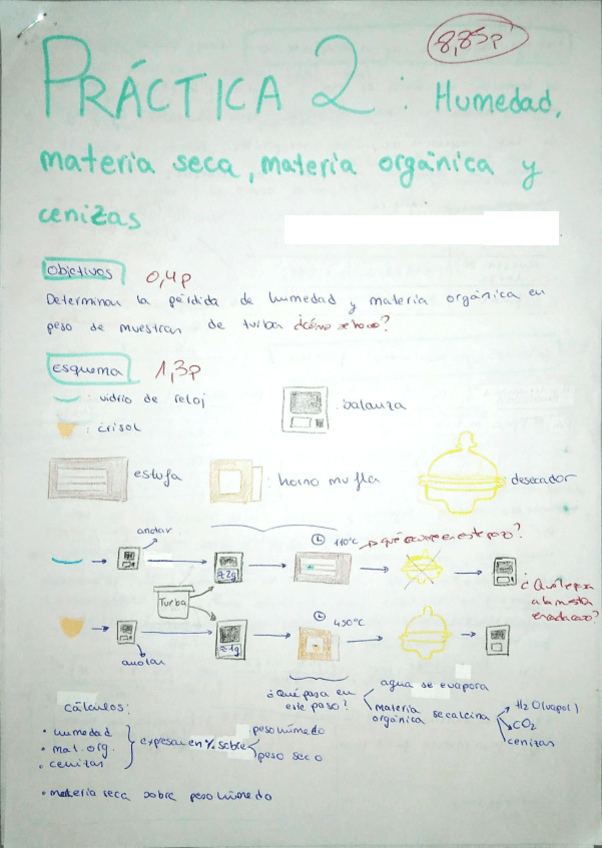 8,85p
PRÁCTICA 2: Humedad,
materia seca, materia orgánica y
cenizas
objetivos 0,4p
Determinar la pérdida de humedad y materia orgánica en
peso de muestras de turba ¿cómo se hace?
esquema 1,3p
: vidrio de reloj
: balanza
: crisol
: estufa
: horno mufla
: desecador
anotar
110ºC ¿qué ocurre en este paso?
≈2g
Turba
¿Qué le pasa
a la muestra
en cada caso?
450ºC
≈1g
anotar
¿Qué pasa en
este paso?
agua se evapora
materia
orgánica se calcina
H2O(vapor)
CO2
cenizas
cálculos:
• humedad
• mat. org.
• cenizas
expresar en % sobre
peso húmedo
peso seco
• materia seca sobre peso húmedo